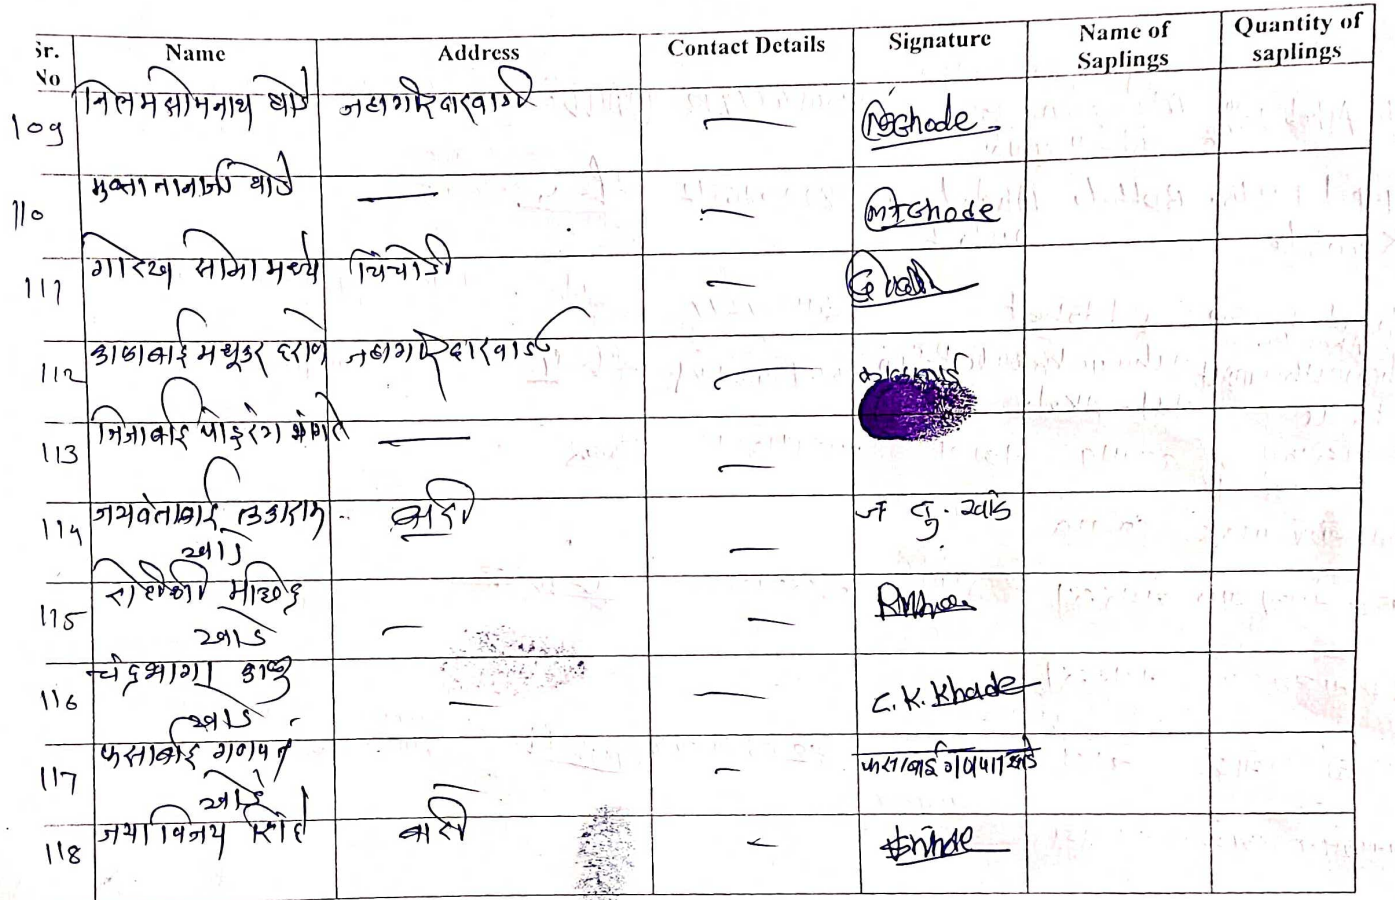 Sr. No Name Address Contact Details Signature Name of Saplings Quantity of saplings
109 निलम सोमनाथ घोडे जहागीरदारवाडी — Ghode
110 मुक्ता तानाजी घोडे — — MTGhode
111 गोरख सोमा मध्ये चिचोंडी —
112 काळाबाई मधुकर जहागीरदारवाडी — काळाबाई
113 जिजाबाई पांडुरंग — —
114 जयवंताबाई तुकाराम खाडे बारी — ज तु. खाडे
115 रोहिणी खाडे — —
116 चंद्रभागा काळु खाडे — — C. K. Khade
117 फसाबाई गणपत खाडे — — फसाबाई गणपत खाडे
118 जया विनय शिंदे बारी — Shinde